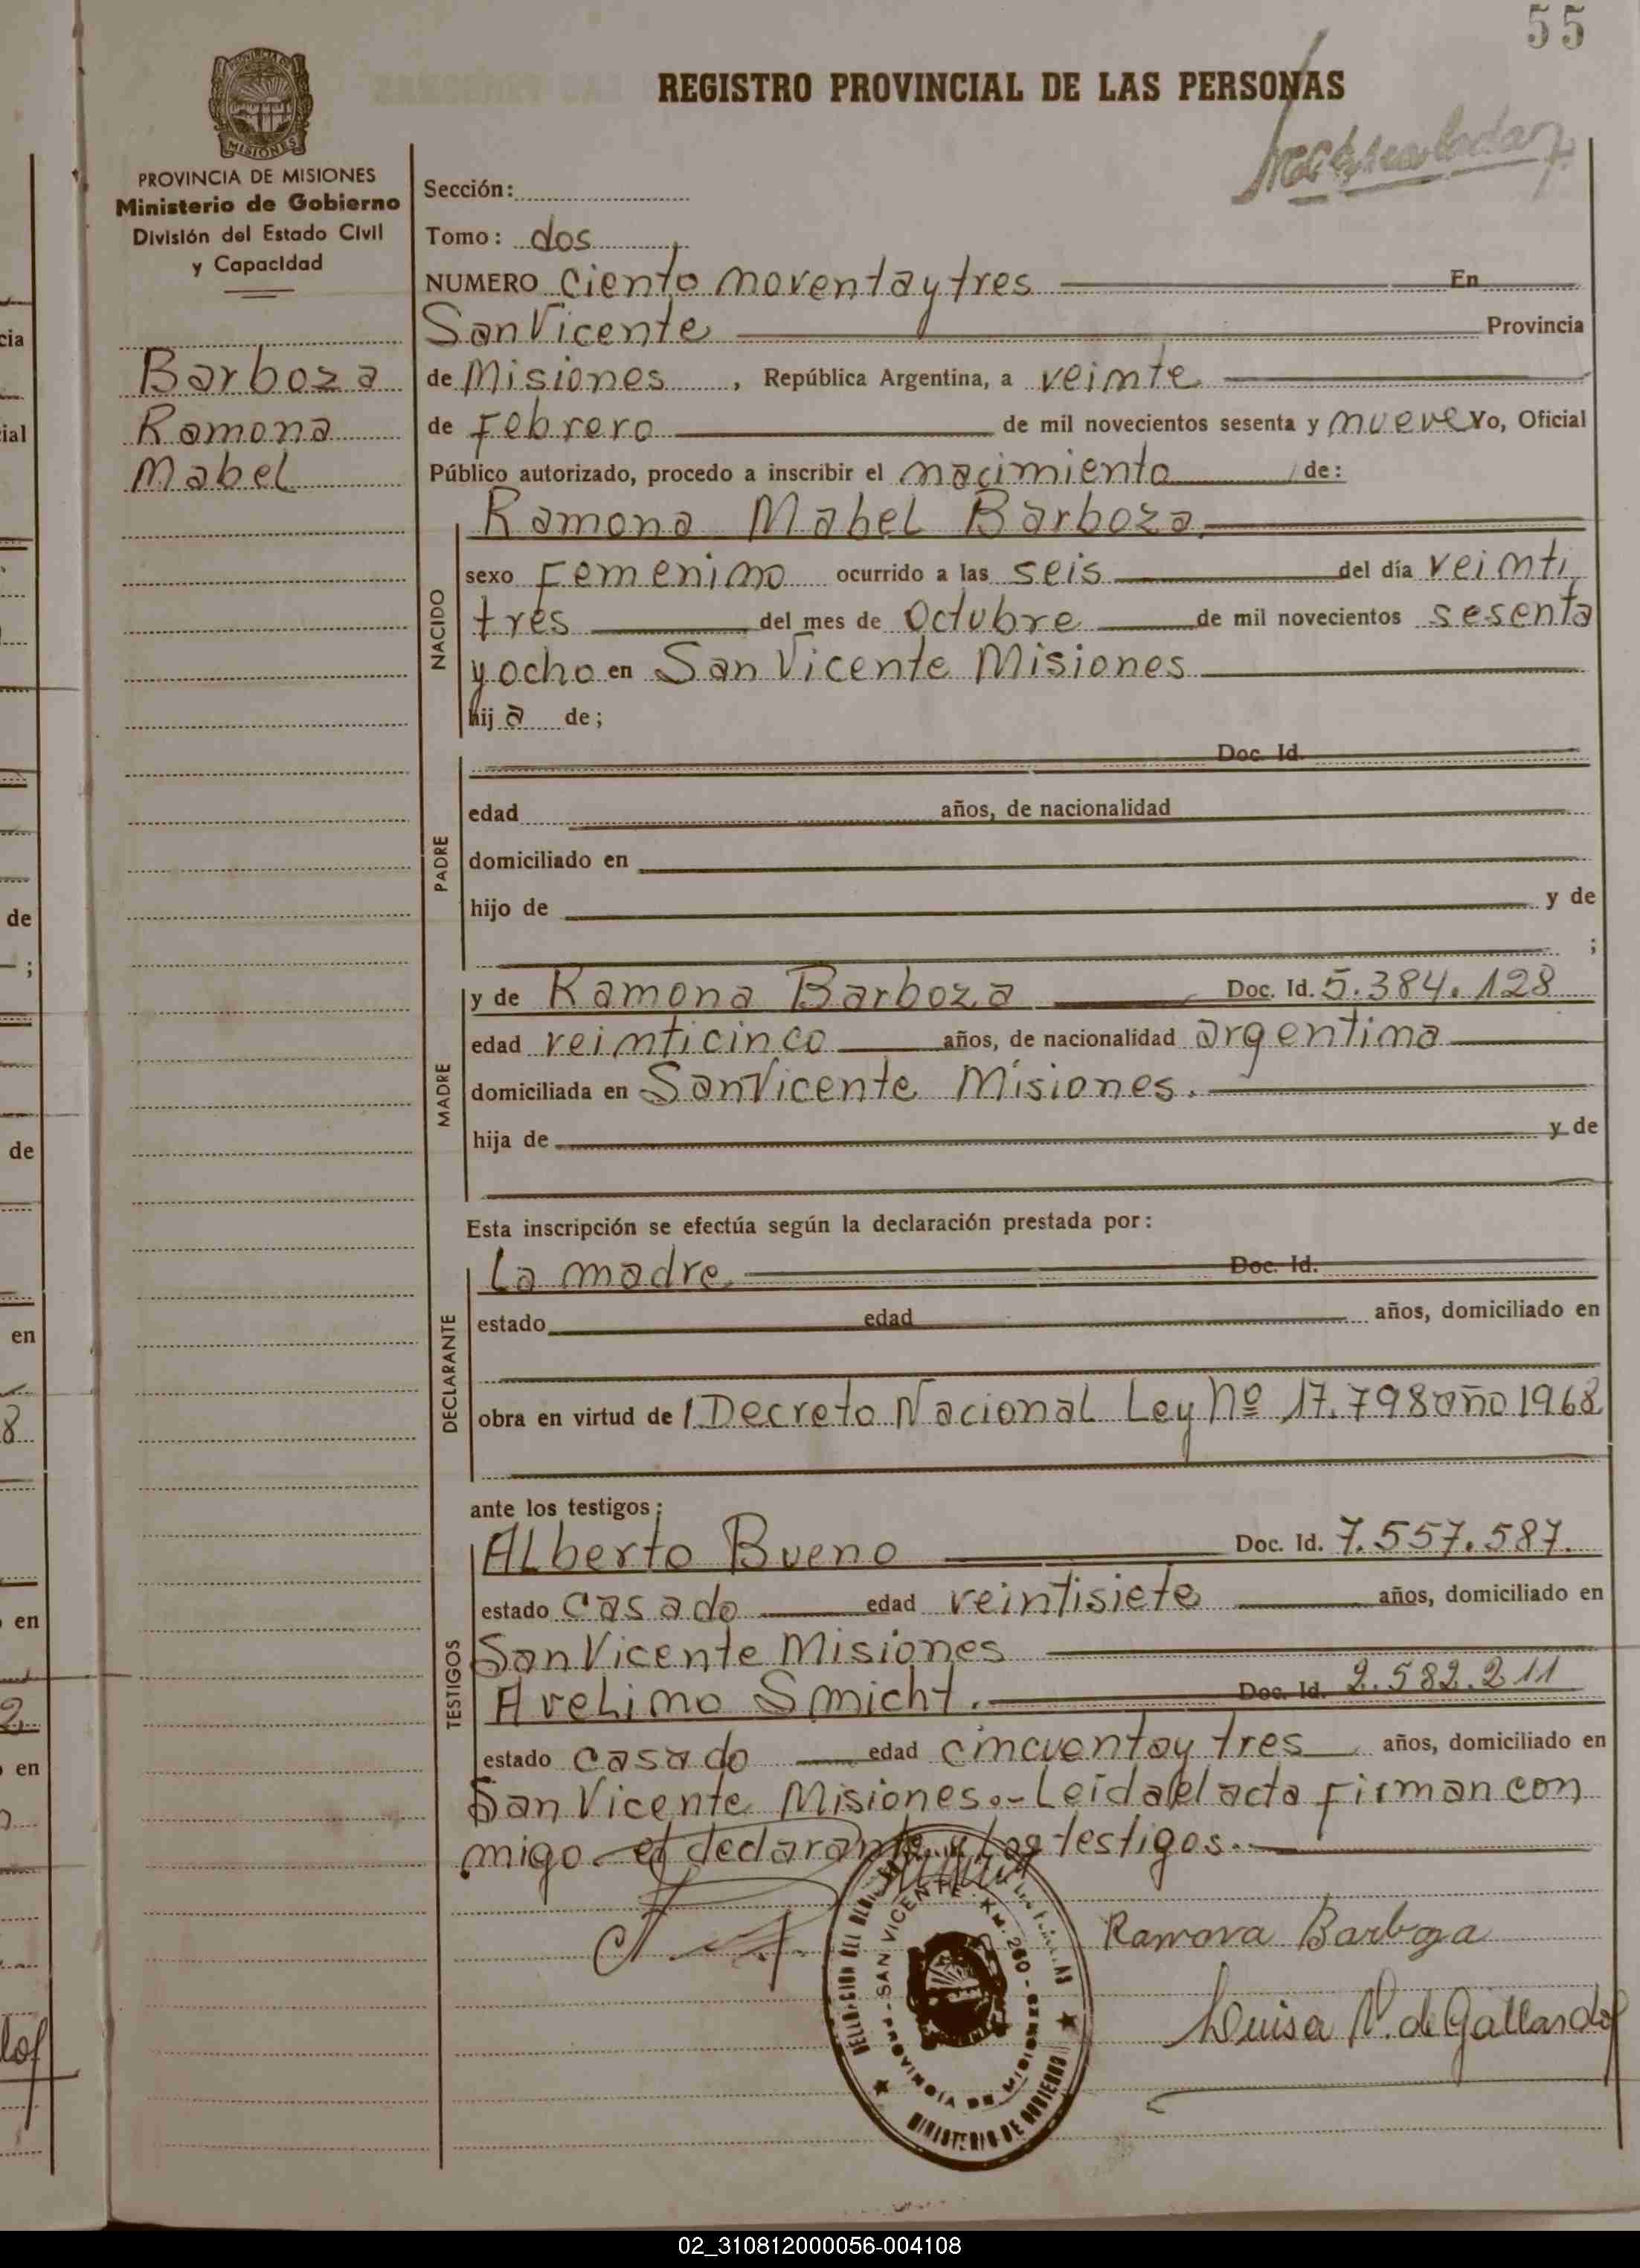 55
REGISTRO PROVINCIAL DE LAS PERSONAS
MISIONES
PROVINCIA DE MISIONES
Ministerio de Gobierno
División del Estado Civil
y Capacidad
Barboza
Ramona
Mabel
Sección:
Tomo: dos
NUMERO Ciento noventa y tres En
San Vicente Provincia
de Misiones, República Argentina, a veinte
de Febrero de mil novecientos sesenta y nueve Yo, Oficial
Público autorizado, procedo a inscribir el nacimiento de:
Ramona Mabel Barboza
NACIDO
sexo Femenino ocurrido a las seis del día veinti
tres del mes de Octubre de mil novecientos sesenta
y ocho en San Vicente Misiones
hija de;
PADRE
Doc. Id.
edad años, de nacionalidad
domiciliado en
hijo de y de
;
MADRE
y de Ramona Barboza Doc. Id. 5.384.128
edad veinticinco años, de nacionalidad argentina
domiciliada en San Vicente Misiones.
hija de y de
Esta inscripción se efectúa según la declaración prestada por:
DECLARANTE
La madre Doc. Id.
estado edad años, domiciliado en
obra en virtud de Decreto Nacional Ley Nº 17.798 año 1968
ante los testigos:
TESTIGOS
Alberto Bueno Doc. Id. 7.557.587.
estado casado edad veintisiete años, domiciliado en
San Vicente Misiones
Avelino Smicht. Doc. Id. 2.582.211
estado casado edad cincuenta y tres años, domiciliado en
San Vicente Misiones.- Leída el acta firman con
migo el declarante y los testigos.
SAN VICENTE KM. 260
PROVINCIA DE MISIONES
MINISTERIO DE GOBIERNO
Ramona Barboza
Luisa V. de Gallardo
cia
ial
de
;
de
en
8
en
2
en
02_310812000056-004108